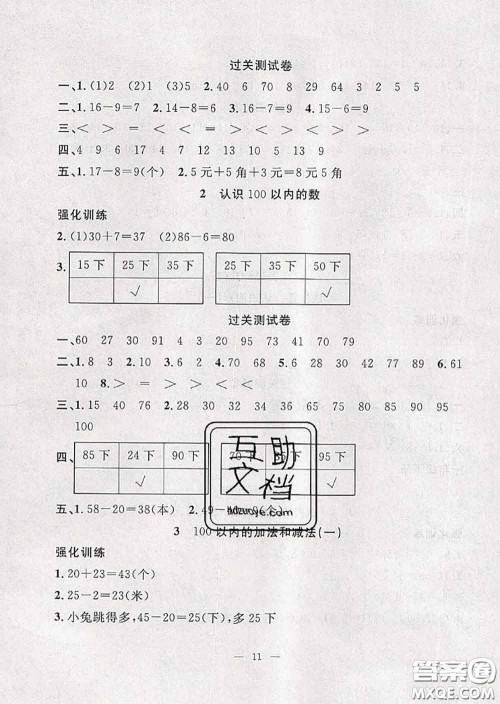 过关测试卷
一、1.(1)2 (2)1 (3)5 2.40 6 70 8 29 64 3 2 5 5
二、1.16－9＝7 2.14－8＝6 3.17－9＝8 4.15－6＝9
三、＜ ＞ ＝ ＜ ＝ ＞ ＜ ＞ ＞
四、4 9 6 17 4 7 12 13 10 5 9 13
五、1.17－8＝9(个) 2.5元＋5角＋3元＝8元5角
2 认识100以内的数
强化训练
2.(1)30＋7＝37 (2)86－6＝80
3. 15下 25下 35下 25下 35下 50下
√ √
过关测试卷
一、60 27 31 4 3 20 95 73 41 70 79
二、1.8 3 2.10 3.2 4.70 90 5.28 30 42 77 89 6.61
10 8.＞ ＝ ＞ ＞ ＜ ＜
三、1.15 40 76 2.28 30 32 88 90 92 91 93 95
100
四、 85下 24下 90下 85下 95下
√ √
五、1.58－20＝38(本) 2.49－ (个)
3 100以内的加法和减法(一)
强化训练
1.20＋23＝43(个)
2.25－2＝23(米)
3.小兔跳得多,45－20＝25(下),多25下
— 11 —
互助
文档
hdzuoye.com
答案圈
MXQE.COM